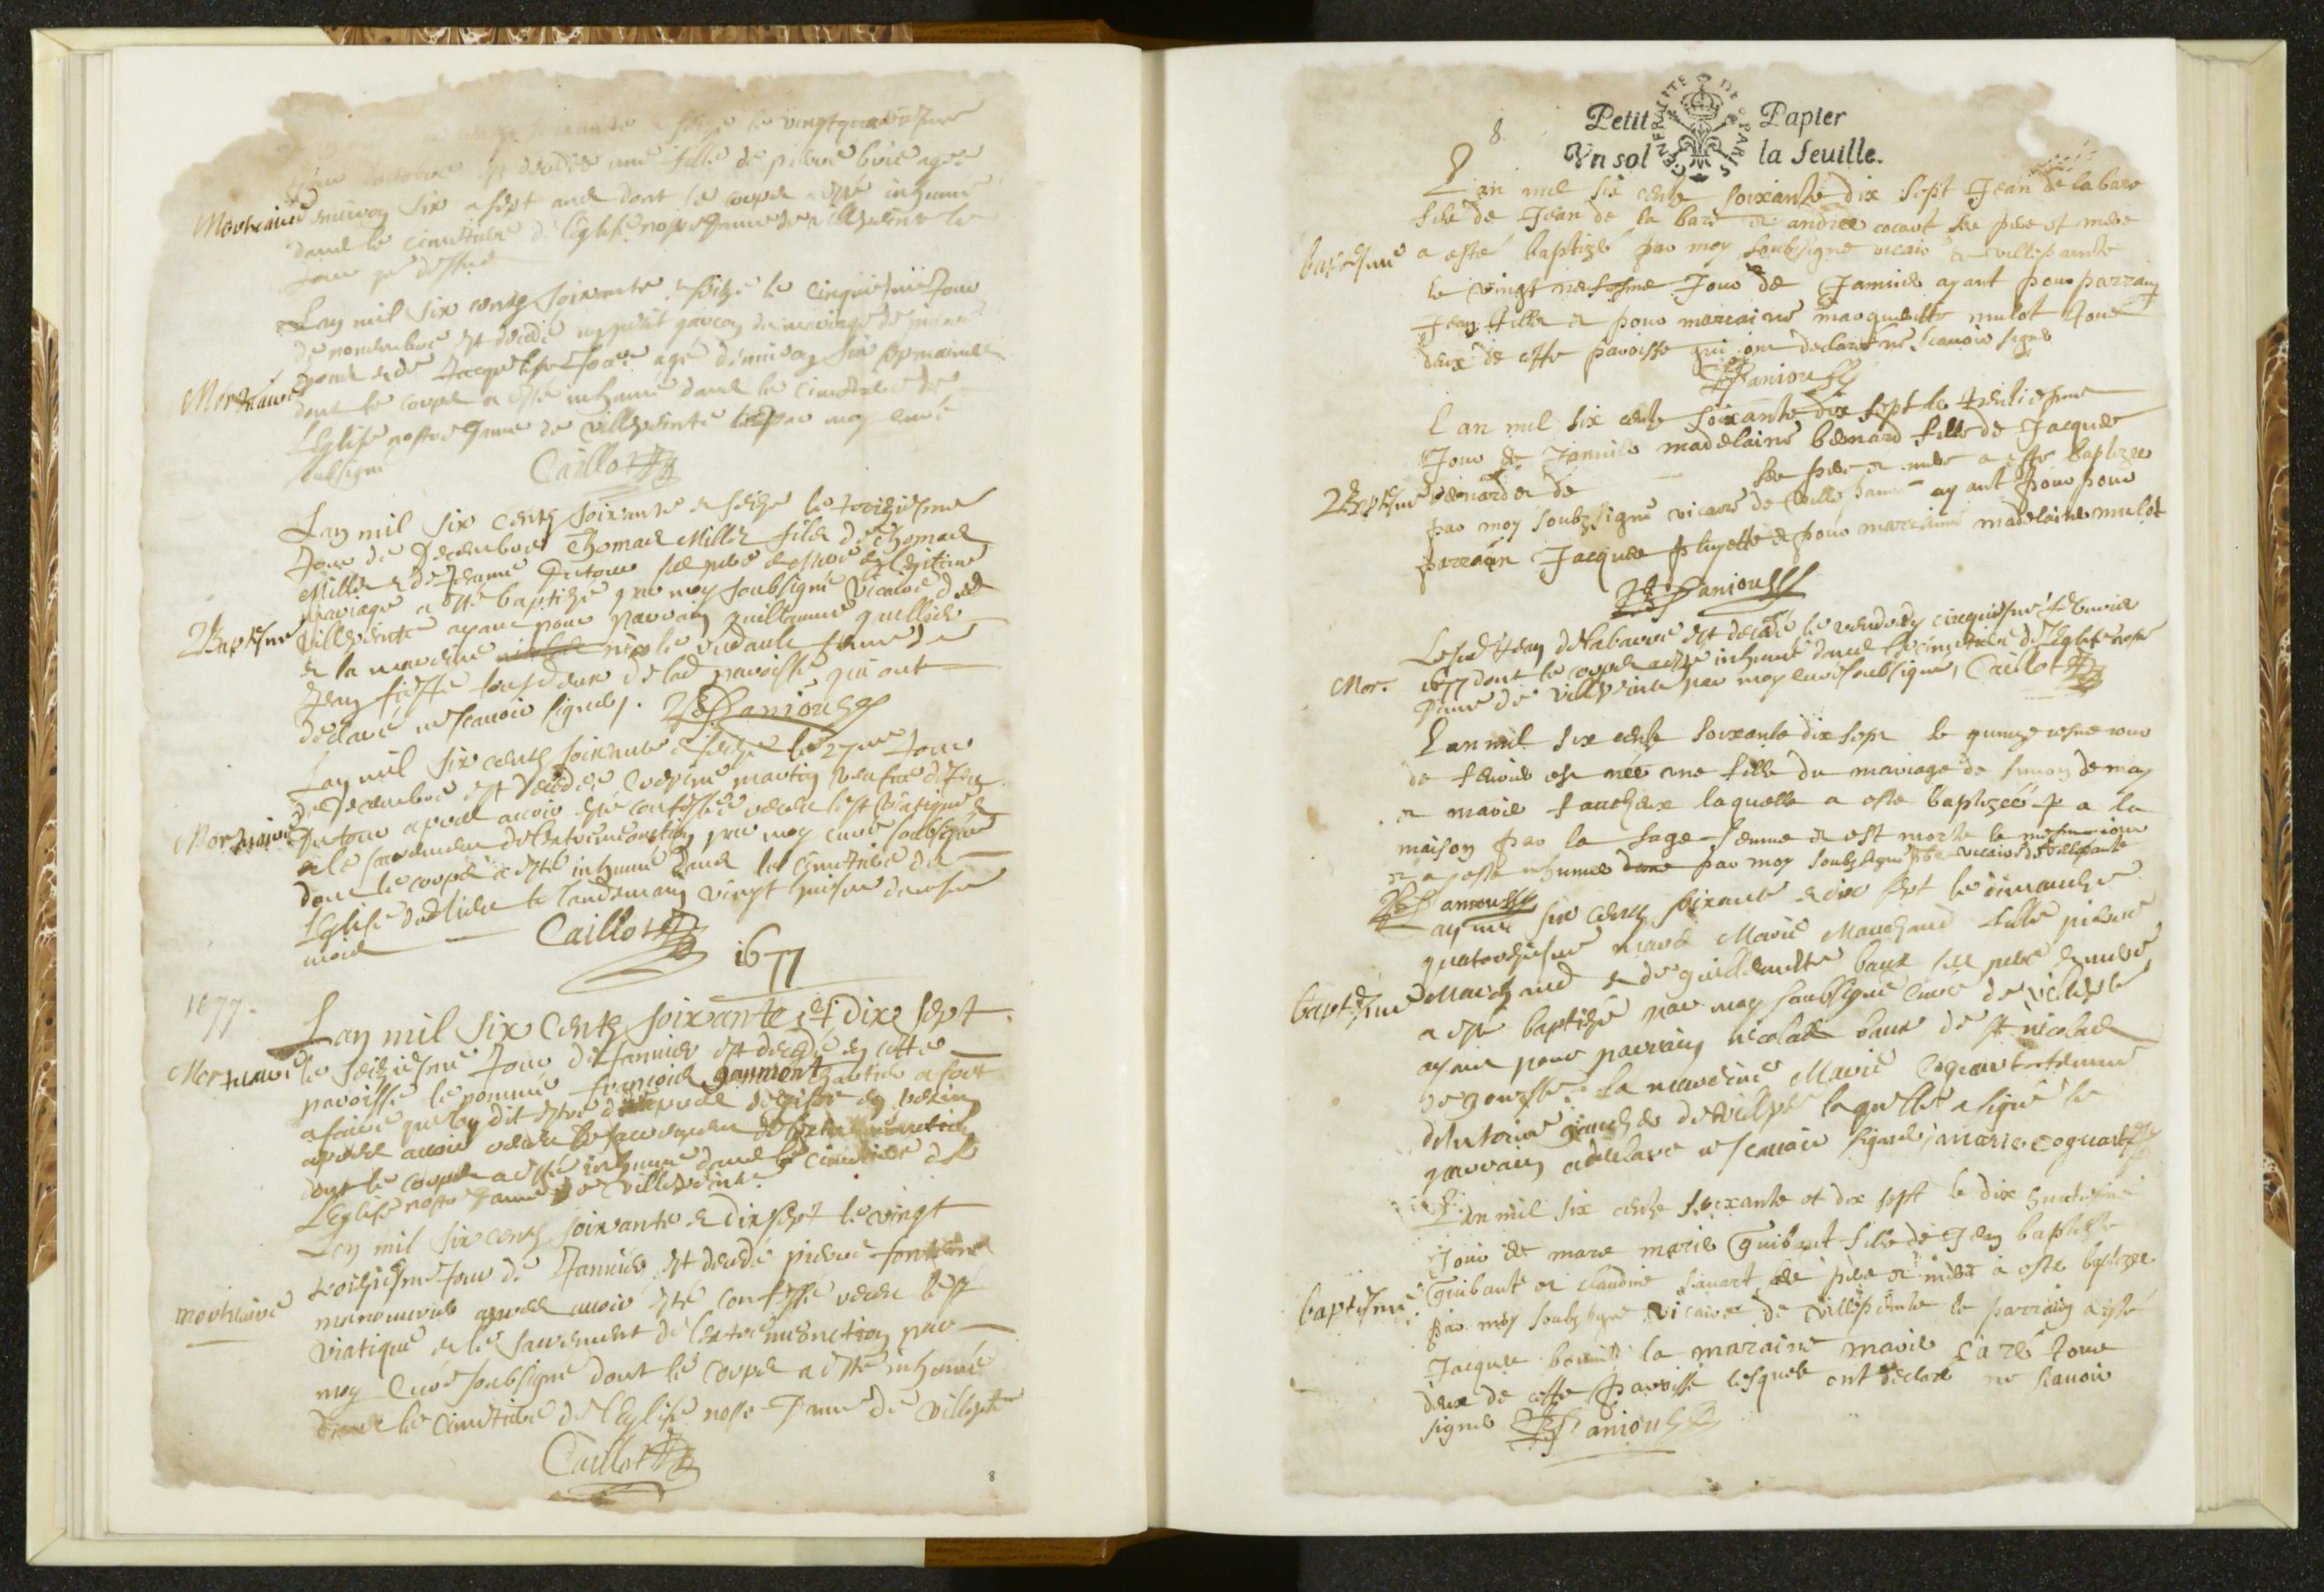 soixante seize le vingtquatriesme
Jour doctobre est decedée une fille de pierre agée
Mortuaire denviron six a sept ans dont le corps a esté inhumé
dans le cimetiere de leglise nostre Dame de villepeinte le
Jour que dessus
Lan mil six cents soixante et seize le cinquiesme Jour
de novembre est decedé un petit garcon du mariage de
et de Jacqueline agé denviron six sepmaines
Mortuaire
dont le corps a esté inhumé dans le cimetiere de
LEglise nostre Dame de villepeinte par moy curé
subsigné
Caillot
Lan mil six cents soixante et seize le treiziesme
Jour de Decembre Thomas Millet fils de Thomas
Millet et de Jeanne Dutour ses pere et mere en legitime
mariage a esté baptizé par moy soubsigné Vicaire de
Baptesme villepeinte ayant pour parrain guillaume
et la mareine nicole femme de
Jean tous deux de lad paroisse qui ont
declaré ne scavoir signer. Danjou
Lan mil six cents soixante et seize le 27me Jour
de Decembre est decedée martin veufve de feu
Mortuaire Dutour apres avoir esté confessée receu le st viatique et
et le sacrement de lextremeonction par moy curé soubsigné
dont le corps a esté inhumé dans le cimetiere de
lEglise dudlieu le landemain vingt huitme
mois Caillot
1677
1677.
Lan mil six Cents soixante et dix sept
Mortuaire le seiziesme Jour de Janvier est decedé en cette
paroisse le nommé françois gaumont
a faire que lon dit estre de
apres avoir receu le sacrement de lextremeonction
dont le corps a esté inhumé dans le cimetiere de
LEglise nostre Dame de villepeinte
Lan mil six cents soixante et dix sept le vingt
troiziesme Jour de Janvier est decedé pierre fontaine
mortuaire manouvrier apres avoir esté confessé receu le st
viatique et le sacrement de lextremeonction par
moy Curé soubsigné dont le corps a esté inhumé
dans le cimetiere de lEglise nostre Dame de villepte
Caillot
8
8.
Petit Papier
Vn sol la feuille.
GENERALITE DE PARIS
Lan mil six cents soixante dix sept Jean de la bare
fils de Jean de la bare et andree cocart ses pere et mere
baptesme a esté baptizé par moy soubsigné vicaire de villepainte
le vingt neufiesme Jour de Janvier ayant pour parrain
Jean et pour maraine marguerite mulot tous
deux de cette paroisse qui ont declaré ne scavoir signer
Danjou
Lan mil six cents soixante dix sept le trentiesme
Jour de Janvier madelaine benard fille de Jacques
Baptesme benard et de ses pere et mere a esté baptizee
par moy soubzsigné vicaire de ville painte ayant pour pour
parrain Jacques pluyette et pour maraine madelaine mulot
Danjou
Lesusd Jean delabarre est decedé le vendredy cinquiesme febvrier
Mor. 1677 dont le corps a esté inhumé dans le cimetiere de lEglise nostre
Dame de villepeinte par moy curé soubsigné, Caillot
Lan mil six cents soixante dix sept le quinziesme iour
de fevrier est née une fille du mariage de simon demay
et marie faucheux laquelle a esté baptizée a la
maison par la sage femme et est morte le mesme iour
et a esté inhumée par moy soubzsigné pbre vicaire de villepainte
Danjou
Lan mil six cents soixante et dix sept le dimanche
quatorziesme mars Marie Marchand fille pierre
baptesme Marchand et de guillemette baux ses pere et mere
a esté baptizée par moy soubsigné curé de villepte
ayant pour parrain nicolas baux de st nicolas
de gonesse: la mareine Marie Coquart femme
dAntoine de villepte laquelle a signé le
parrain a declaré ne scavoir signer, marie coquart
Lan mil six cents soixante et dix sept le dix huitiesme
Jour de mars marie Guibart fille de Jean baptiste
baptesme Guibart et claudine ses pere et mere a esté baptizee
par moy soubzsigné vicaire de villepeinte le parrain a esté
Jacques la maraine marie caré tous
deux de cette paroisse lesquels ont declaré ne scavoir
signer Danjou